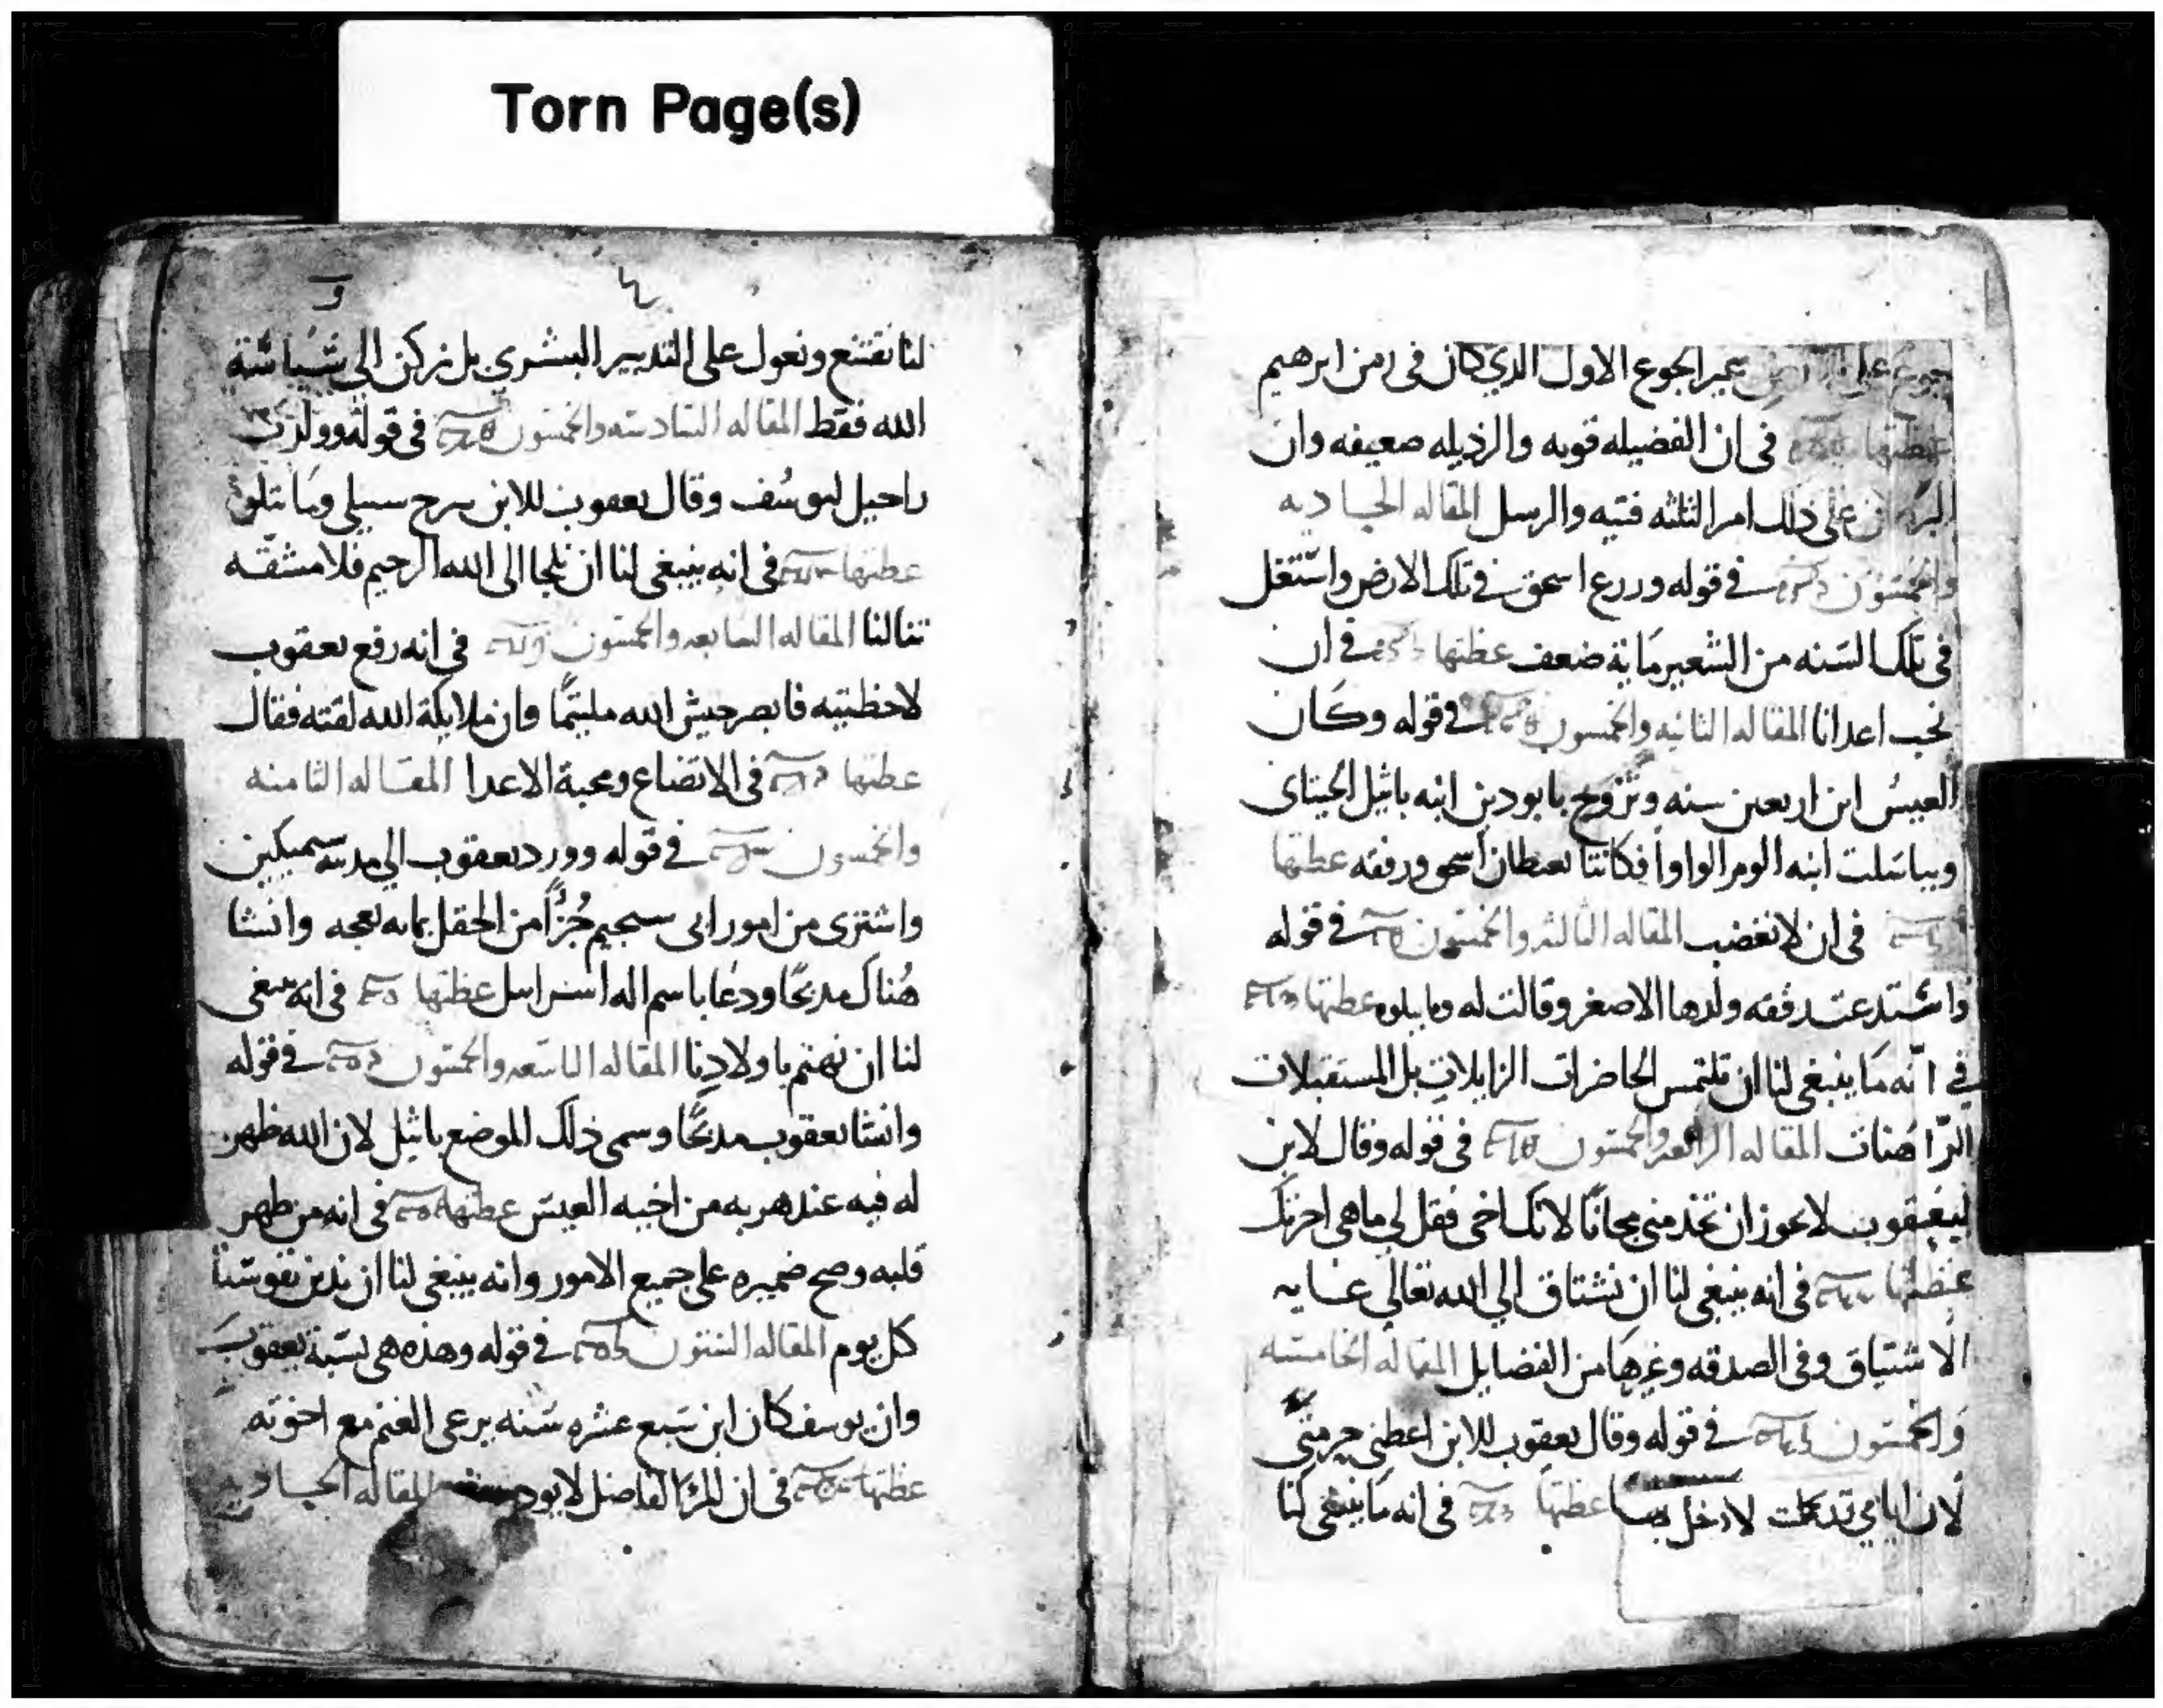 Torn Page(s)
غير الجوع الاول الدي كان فى زمن ابرهيم
عظتها فى ان الفضيله قويه والرذيله صعيفه وان
على ذلك امر الثلثه فتيه والرسل المقاله الحاديه
والخمسون فى قوله وزرع اسحق فى تلك الارض واستغل
فى تلك السنه من الشعير ماية ضعف عظتها فى ان
نحب اعدانا المقاله الثانيه والخمسون فى قوله وكان
العيس ابن اربعين سنه وتزوج بابودين ابنه باثيل الحيتاى
عظتها
فى ان لا نغضب المقاله الثالثه والخمسون فى قوله
ولدها الاصغر وقالت له وما يتلوه عظتها
في انّه ما ينبغى لنا ان نلتمس الحاضرات الزايلات بل المستقبلات
المقاله الرابعه والخمسون فى قوله وقال لابن
ليعقوب لا يجوز ان تخدمنى مجانًا لانك اخى فقل لي ما هى اجرتك
عظتها فى انه ينبغى لنا ان نشتاق الي الله تعالي غايه
الاشتياق وفى الصدقه وغيرها من الفضايل المقاله الخامسه
والخمسون فى قوله وقال يعقوب للابن اعطنى حرمتى
لان ايامي قد كملت لادخل عظتها فى انه ما ينبغى لنا
لنا نقتنع ونعول على التدبير البشري بل نركن الي
الله فقط المقاله السادسه والخمسون فى قوله وولدت
راحيل ليوسف وقال يعقوب للابن سرح سبيلى وما يتلوه
عظتها فى انه ينبغى لنا ان نلجا الى الله الرحيم فلا مشقّه
تنالنا المقاله السابعه والخمسون فى انه رفع يعقوب
لاحظتيه فابصر جيش الله ملتيمًا وان ملايكة الله لقته فقال
عظتها فى الاتضاع ومحبة الاعدا المقاله الثامنه
والخمسون فى قوله وورد يعقوب الي مدينه سميكين
واشترى من امور ابى سجيم جُزًّا من الحقل بمايه نعجه وانشا
هُناك مدبحًا ودعا باسم اله اسراييل عظتها فى انه ينبغى
لنا ان نهتم باولادنا المقاله التاسعه والخمسون فى قوله
وانشا يعقوب مدبحًا وسمى ذلك الموضع باثيل لان الله ظهر
له فيه عند هربه من اخيه العيس عظتها فى انه من طهر
قلبه وصح ضميره على جميع الامور وانه ينبغى لنا ان ندين نفوسنا
كل يوم المقاله الستون فى قوله وهذه هى نسبة يعقوب
وان يوسف كان ابن سبع عشره سنه يرعى الغنم مع اخوته
عظتها فى ان المرء الفاضل المقاله الحاديه